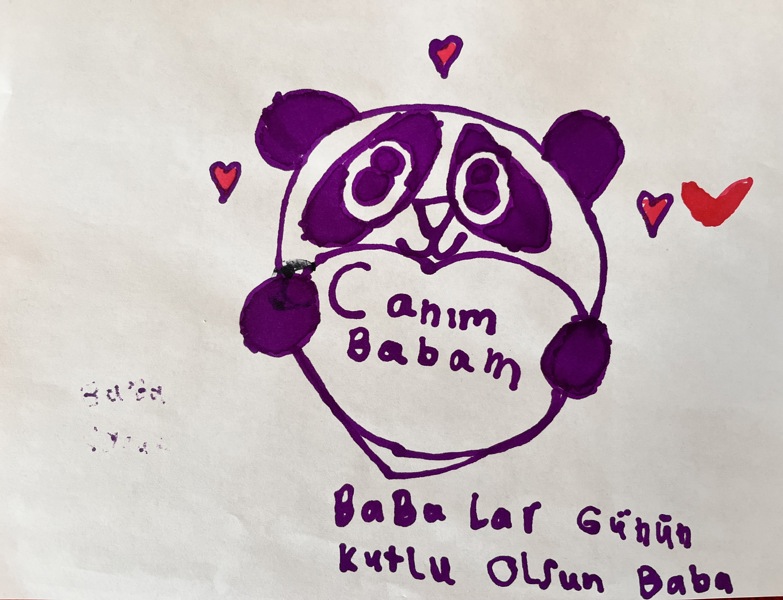 Canım
Babam
BaBa Lar Günün
Kutlu Olsun Baba
Baba